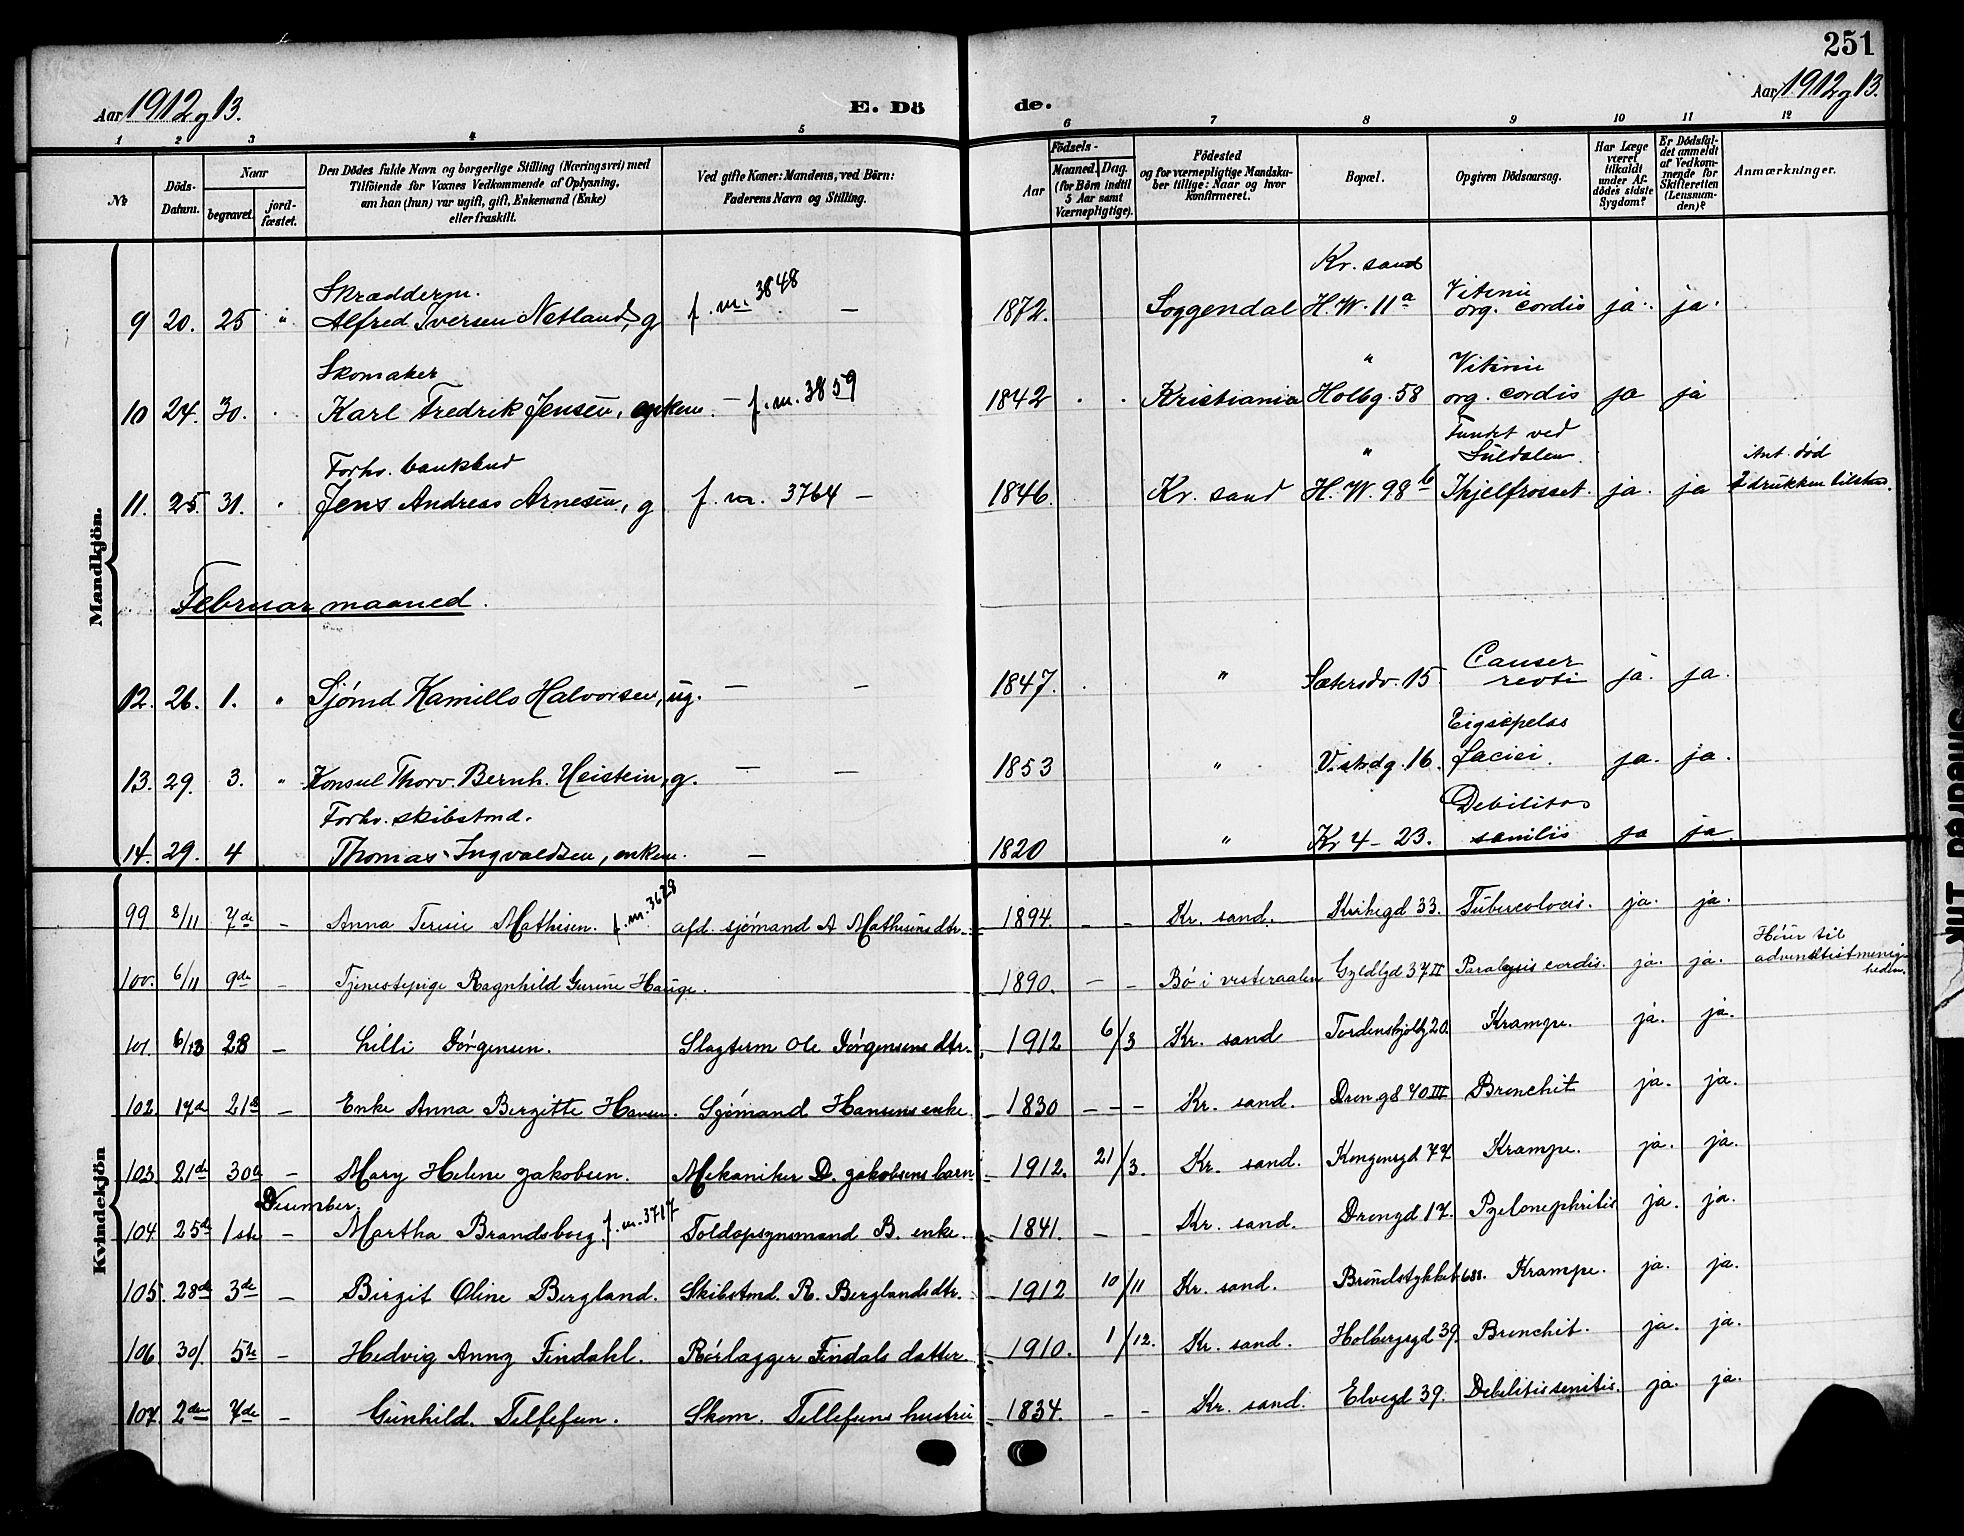 251
Aar 1912 og 13.
E. Dö
de.
Aar 1912 og 13.
1 2 3 4 5 6 7 8 9 10 11 12
No
Döds-Datum.
Naar
begravet. jord-fæstet.
Den Dödes fulde Navn og borgerlige Stilling (Næringsvei) med
Tilföiende for Voxnes Vedkommende af Oplysning,
om han (hun) var ugift, gift, Enkemand (Enke)
eller fraskilt.
Ved gifte Koner: Mandens, ved Börn:
Faderens Navn og Stilling.
Födsels-
Aar
Maaned. Dag.
(for Börn indtil
5 Aar samt
Værnepligtige).
Födested
og for værnepligtige Mandska-
ber tillige: Naar og hvor
konfirmeret.
Bopæl.
Opgiven Dödsaarsag.
Har Læge
været
tilkaldt
under Af-
dödes sidste
Sygdom?
Er Dödsfal-
det anmeldt
af Vedkom-
mende for
Skifteretten
(Lensman-
den)?
Anmærkninger.
Mandkjön.
Skrædderm. Kr. sand Vitium
9 20. 25 " Alfred Iversen Netland, g f. m. 3848 — 1872. Soggendal H.W. 11a org. cordis ja. ja.
Skomaker " Vitium
10 24. 30. Karl Fredrik Jensen, enkem. — f. m. 3859 1842 Kristiania Holbg. 58 org. cordis ja ja
Forhv. bankbud " Fundet ved Suldalen Ant. død
11. 25. 31. " Jens Andreas Arnesen, g f. m. 3764 — 1846. Kr. sand H.W. 98b Ihjelfrosset. ja. ja i drukken tilstand.
Februar maaned.
12. 26. 1. " Sjømd Kamillo Halvorsen, ug. — — 1847. " Sætersdv. 15 Cancer recti ja. ja.
13. 29. 3. " Konsul Thorv. Bernh. Heistein, g. — — 1853 " V.strdg. 16. faciei. ja. ja.
Forhv. skibstmd. Debilitas
14. 29. 4 Thomas Ingvaldsen, enkem. — 1820 " Kr 4 - 23. senilis ja ja
Kvindekjön
99 8/11 7de — Anna Mathisen. f. m. 3628 afd. sjømand A Mathisens dtr. — 1894. — — Kr. sand. Kirkegd 33. ja. ja.
100. 6/11 9de — Tjenestepige Ragnhild Gurine Hauge. 1890. — — Bø i vesteraalen Gyldlgd 37 II Paralysis cordis. ja. ja. Hører til adventistmenigheden.
101. 6/13 28 — Lilli Jörgensen. Slagterm Ole Jörgensens dtr. 1912 6/3 Kr. sand Tordenskjoldg 20. Krampe. ja. ja.
102. 17d 21d — Enke Anna Bergitte Hansen. Sjömand Hansens enke — 1830 — — — Kr. sand. Drongd 40 III Bronchit ja. ja.
103. 21de 30d — Mary Helene Jakobsen. Mekaniker D. Jakobsens barn 1912. 21/3. Kr. sand. Kongensgd 77 Krampe. ja. ja.
Desember.
104. 25de 1ste — Martha Brandsborg. f. m. 3717 Toldopsynsmand B. enke. 1841. — — Kr. sand. Drongd 17. Pyelonephritis ja. ja.
105. 28de 3de — Birgit Oline Bergland. Skibstmd. R. Berglands dtr. — 1912 10/11 Kr. sand. Brundstykket 688. Krampe. ja. ja.
106 30/ 5te — Hedvig Anny Findahl. Rörlægger Findals datter. 1910. 1/12. Kr. sand. Holbergsgd 39. Bronchit. ja. ja.
107. 2den 7de — Gunhild. Tellefsen. Skom. Tellefsens hustru — 1834. — — Kr. sand. Elvegd 39. Debilitis senitis. ja. ja.